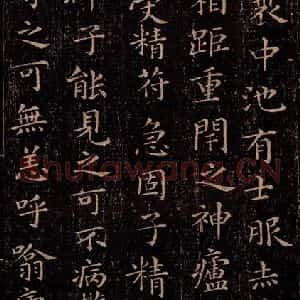 衰中池有士服赤
相距重閇之神廬
受精符急固子精
子能見之可不病
之可無恙呼噏
Shufawang.CN